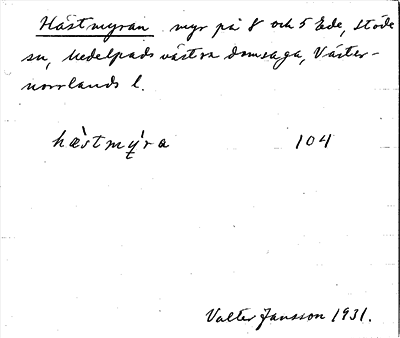 Hästmyran myr på 8 och 5 Ede, Stöde
sn, Medelpads västra domsaga, Väster-
norrlands l.
hæ̀stmý̱ra 104
Valter Jansson 1931.